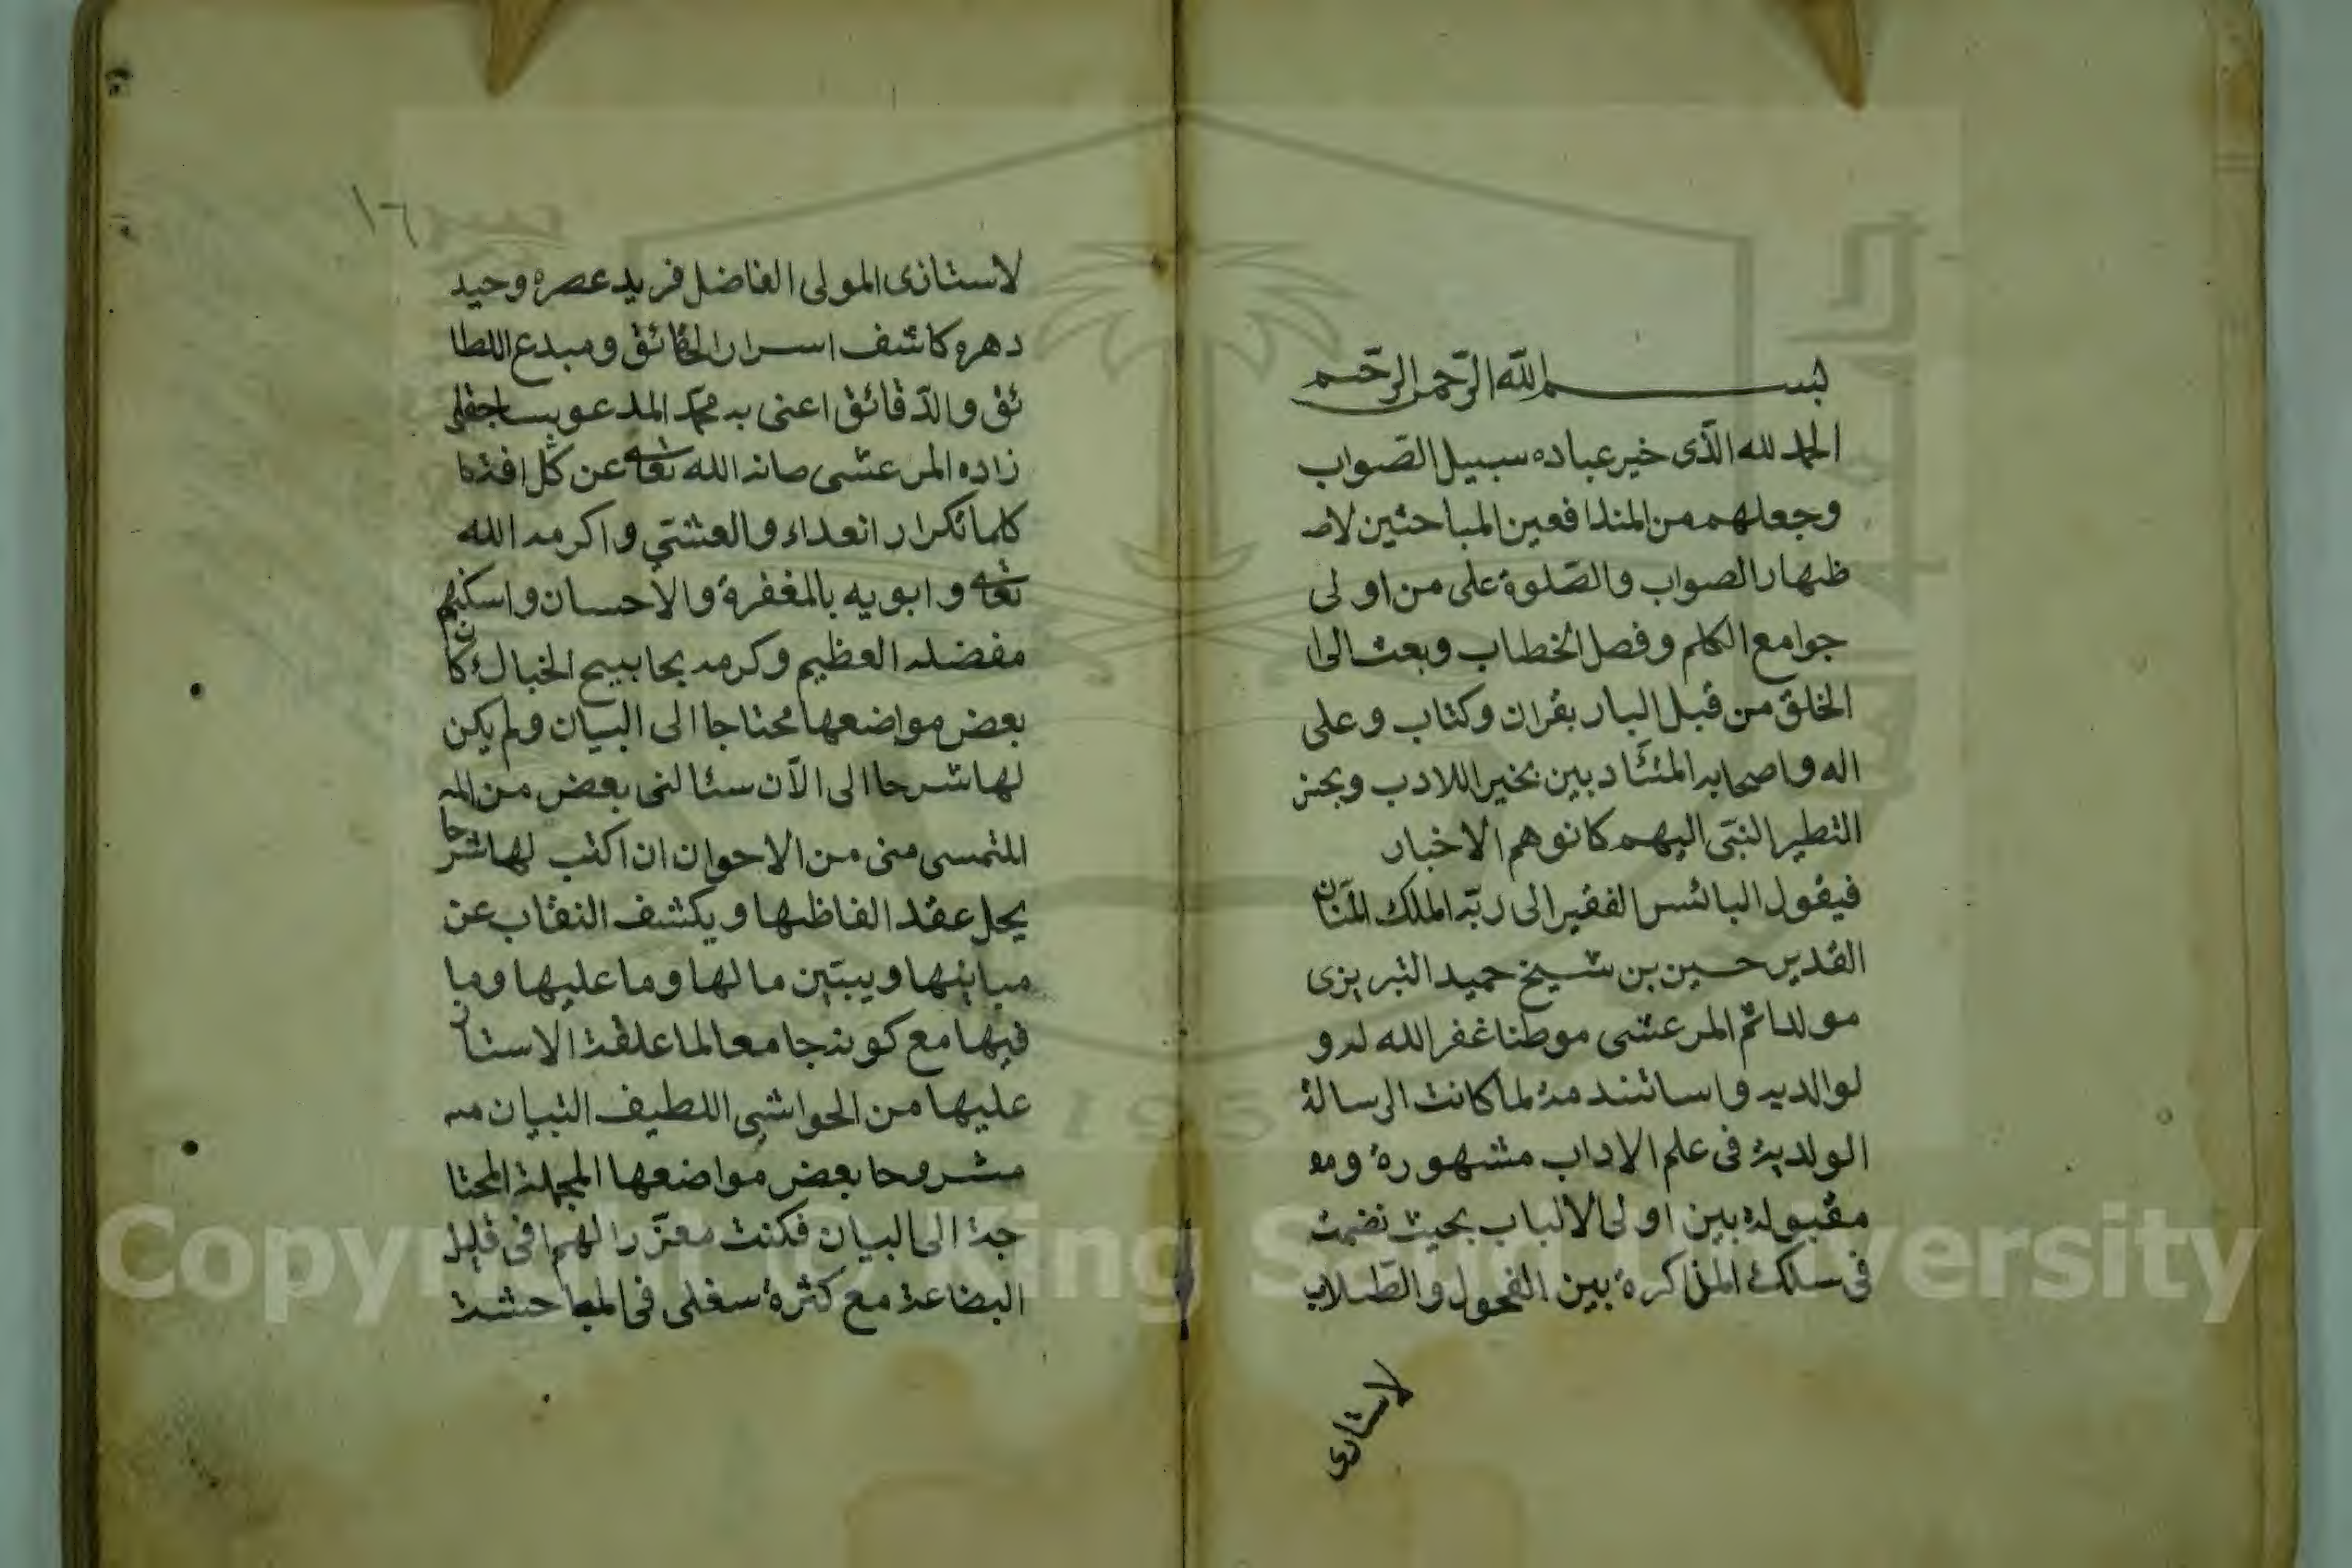 بسم الله الرحمن الرحيم
الحمد لله الّذى خير عباده سبيل الصّواب
وجعلهم من المندافعين المباحثين لاظ
ظهار الصواب والصّلوة على من اولى
جوامع الكلم وفصل الخطاب وبعث الى ا
الخلق من قبل البار بقران وكتاب وعلى
اله واصحابه المتئادبين بخير اللادب وبحنز
التطير النبّى اليهم كانوهم الاخبار
فيقول البائس الفقير الى ربّه الملك المنّان
القدير حسين بن شيخ حميد التبريزى
مولدا ثم المرعشى موطنا غفر الله له و
لوالديه واساتندمة لما كانت الرسالة
الولدية فى علم الاداب مشهورة ومق
مقبولة بين اولى الالباب بحيث نضمت
فى سلك المذاكرة بين الفحول والطّلاب
لاستاذى
١٦
لاستاذى المولى الفاضل فريد عصره وحيد
دهره كاشف اسرار الحقائق ومبدع اللطا
ئق والدّقائق اعنى به محمّد المدعو بساجقلى
زاده المرعشى صانه الله تعالى عن كل افة كا
كلما تكرار انعداء والعشتي واكرمه الله
تعالى وابويه بالمغفرة والاحسان واسكنهم
مفضله العظيم وكرمه بحابيح الخبال كان
بعض مواضعها محتاجا الى البيان ولم يكن
لها شرحا الى الآن سئالنى بعض من الم
الملتمسى منى من الاحوان ان اكتب لها شرحا
يحل عقد الفاظها ويكشف النقاب عن
مبانيها ويبيّن ما لها وما عليها وما
فيها مع كونه جامعا لما علقة الاستاذ
عليها من الحواشى اللطيف التبيان م
مشروحا بعض مواضعها المجملة المحتا
جة الى البيان فكنت معتزرا لهم فى قليل
البضاعة مع كثرة سغلى فى المباحشة
Copyright © King Saud University
1957